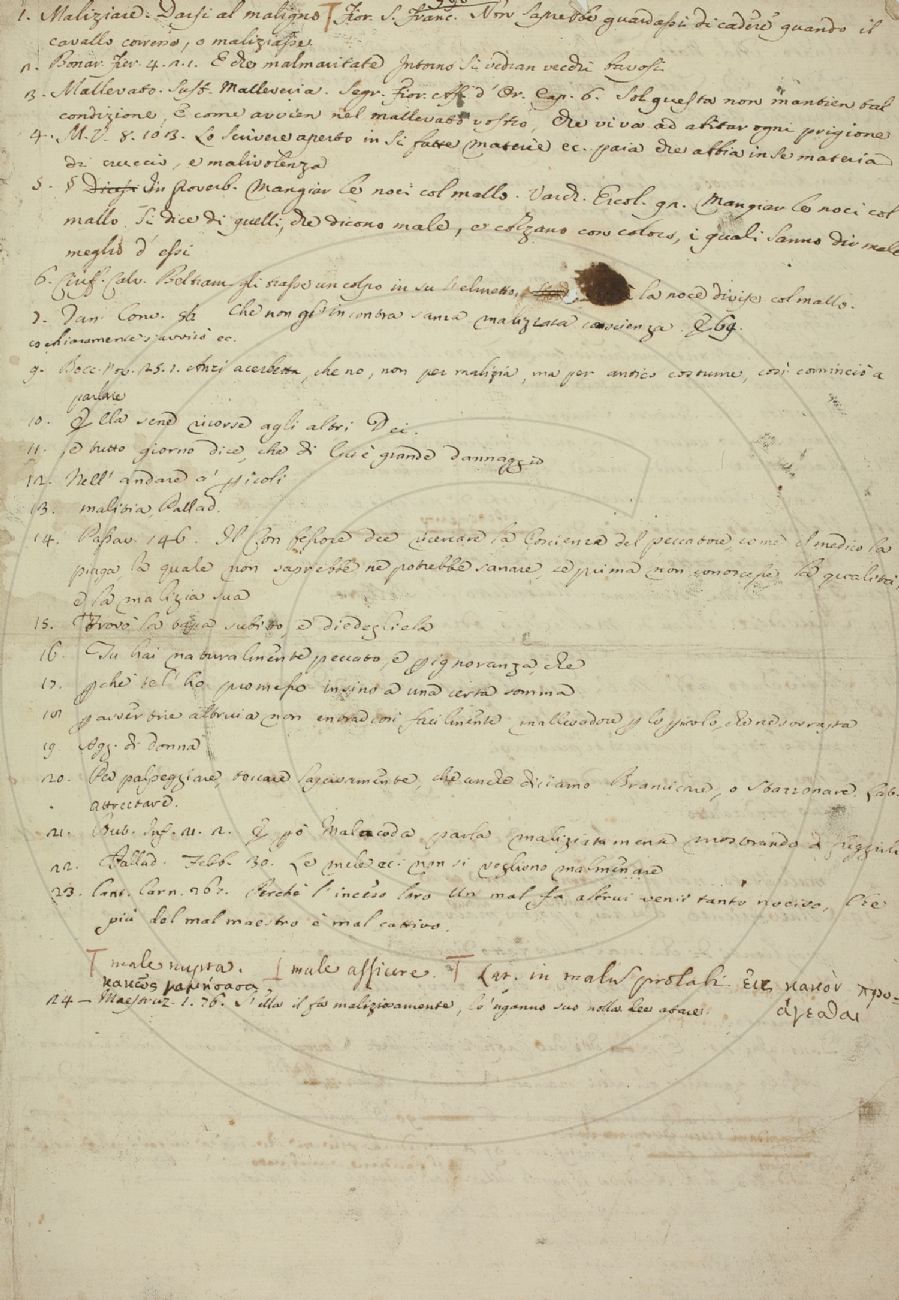 1. Maliziare: Darsi al maligno T Fior. S. Franc. Non saprebbe guardassi di cadere quando il
cavallo corresse, o maliziasse
2. Bonar. Fier. 4. 2. 1. E che malmaritate Intorno si vedian vecchi bavosi
3. Mallevato. Sust. Malleveria. Segr. Fior. Cap. 6. Sol questa non mantien tal
condizione, E come avvien nel mallevato vostro, Che viva ad abitar ogni prigione
4. M. V. 8. 103. Lo scrivere aperto in si fatte materie ec. paia che abbia in se materia
di cruccio, e malivolenza
5. § In Proverb. Mangiar le noci col mallo. Varch. Ercol. 92. Mangiar le noci col
mallo si dice di quelli, che dicono male, e cozzano con coloro, i quali sanno dir male
meglio d' essi
6. Ciriff. Calv. Beltram gli trasse un colpo in su l'elmetto, la noce divise col mallo.
7. Dan. Conv. Che non gl' incontra sanza maliziata coscienza. 69.
chiaramente s'avvisò ec.
9. Bocc. Nov. 25. 1. Anzi acerbetta, che no, non per malizia, ma per antico costume, così cominciò a
parlare
10. Ella sene ricorse agli altri Dei.
11. se tutto giorno dice, che di lui è grande dannaggio
12. Nell' andare a' picoli
13. malizia Pallad.
14. Passav. 146. Il Confessore dee cercare la coscienza del peccatore, come el medico la
piaga la quale non saprebbe ne potrebbe sanare, se prima non conoscesse la qualità,
e la malizia sua
15. Trovò la subito, e diedegliela
16. Tu hai naturalmente peccato, e p ignoranza, che
17. pchè tel' ho promesso insino a una certa somma
18 pavvertire altrui a non entrar così facilmente mallevadore p lo picolo, che ne sovrasta
19. Agg. di donna
20. Per palpeggiare, toccare lascivamente, che anche diciamo Brancicare, o sbazzonare Lat.
attrectare.
21. But. Inf. 21. 2. E pò Malacoda parla maliziatamente mostrando di
22. Pallad. Febb. 30. Le mele ec. non si vogliono malmenare
23. Cant. Carn. 267. Perchè l' incenso loro Un mal fa altrui venir tanto nocivo, Che
più del mal maestro è mal cattivo.
T male nupta. T male afficere. T Lat. in malus prolabi εἰς κακὸν προ-
κακῶς γαμήσασα ἄγεσθαι
24 - Maestruz. 1. 76. S' ella il fa maliziosamente, lo 'nganno suo nolla dee atare.